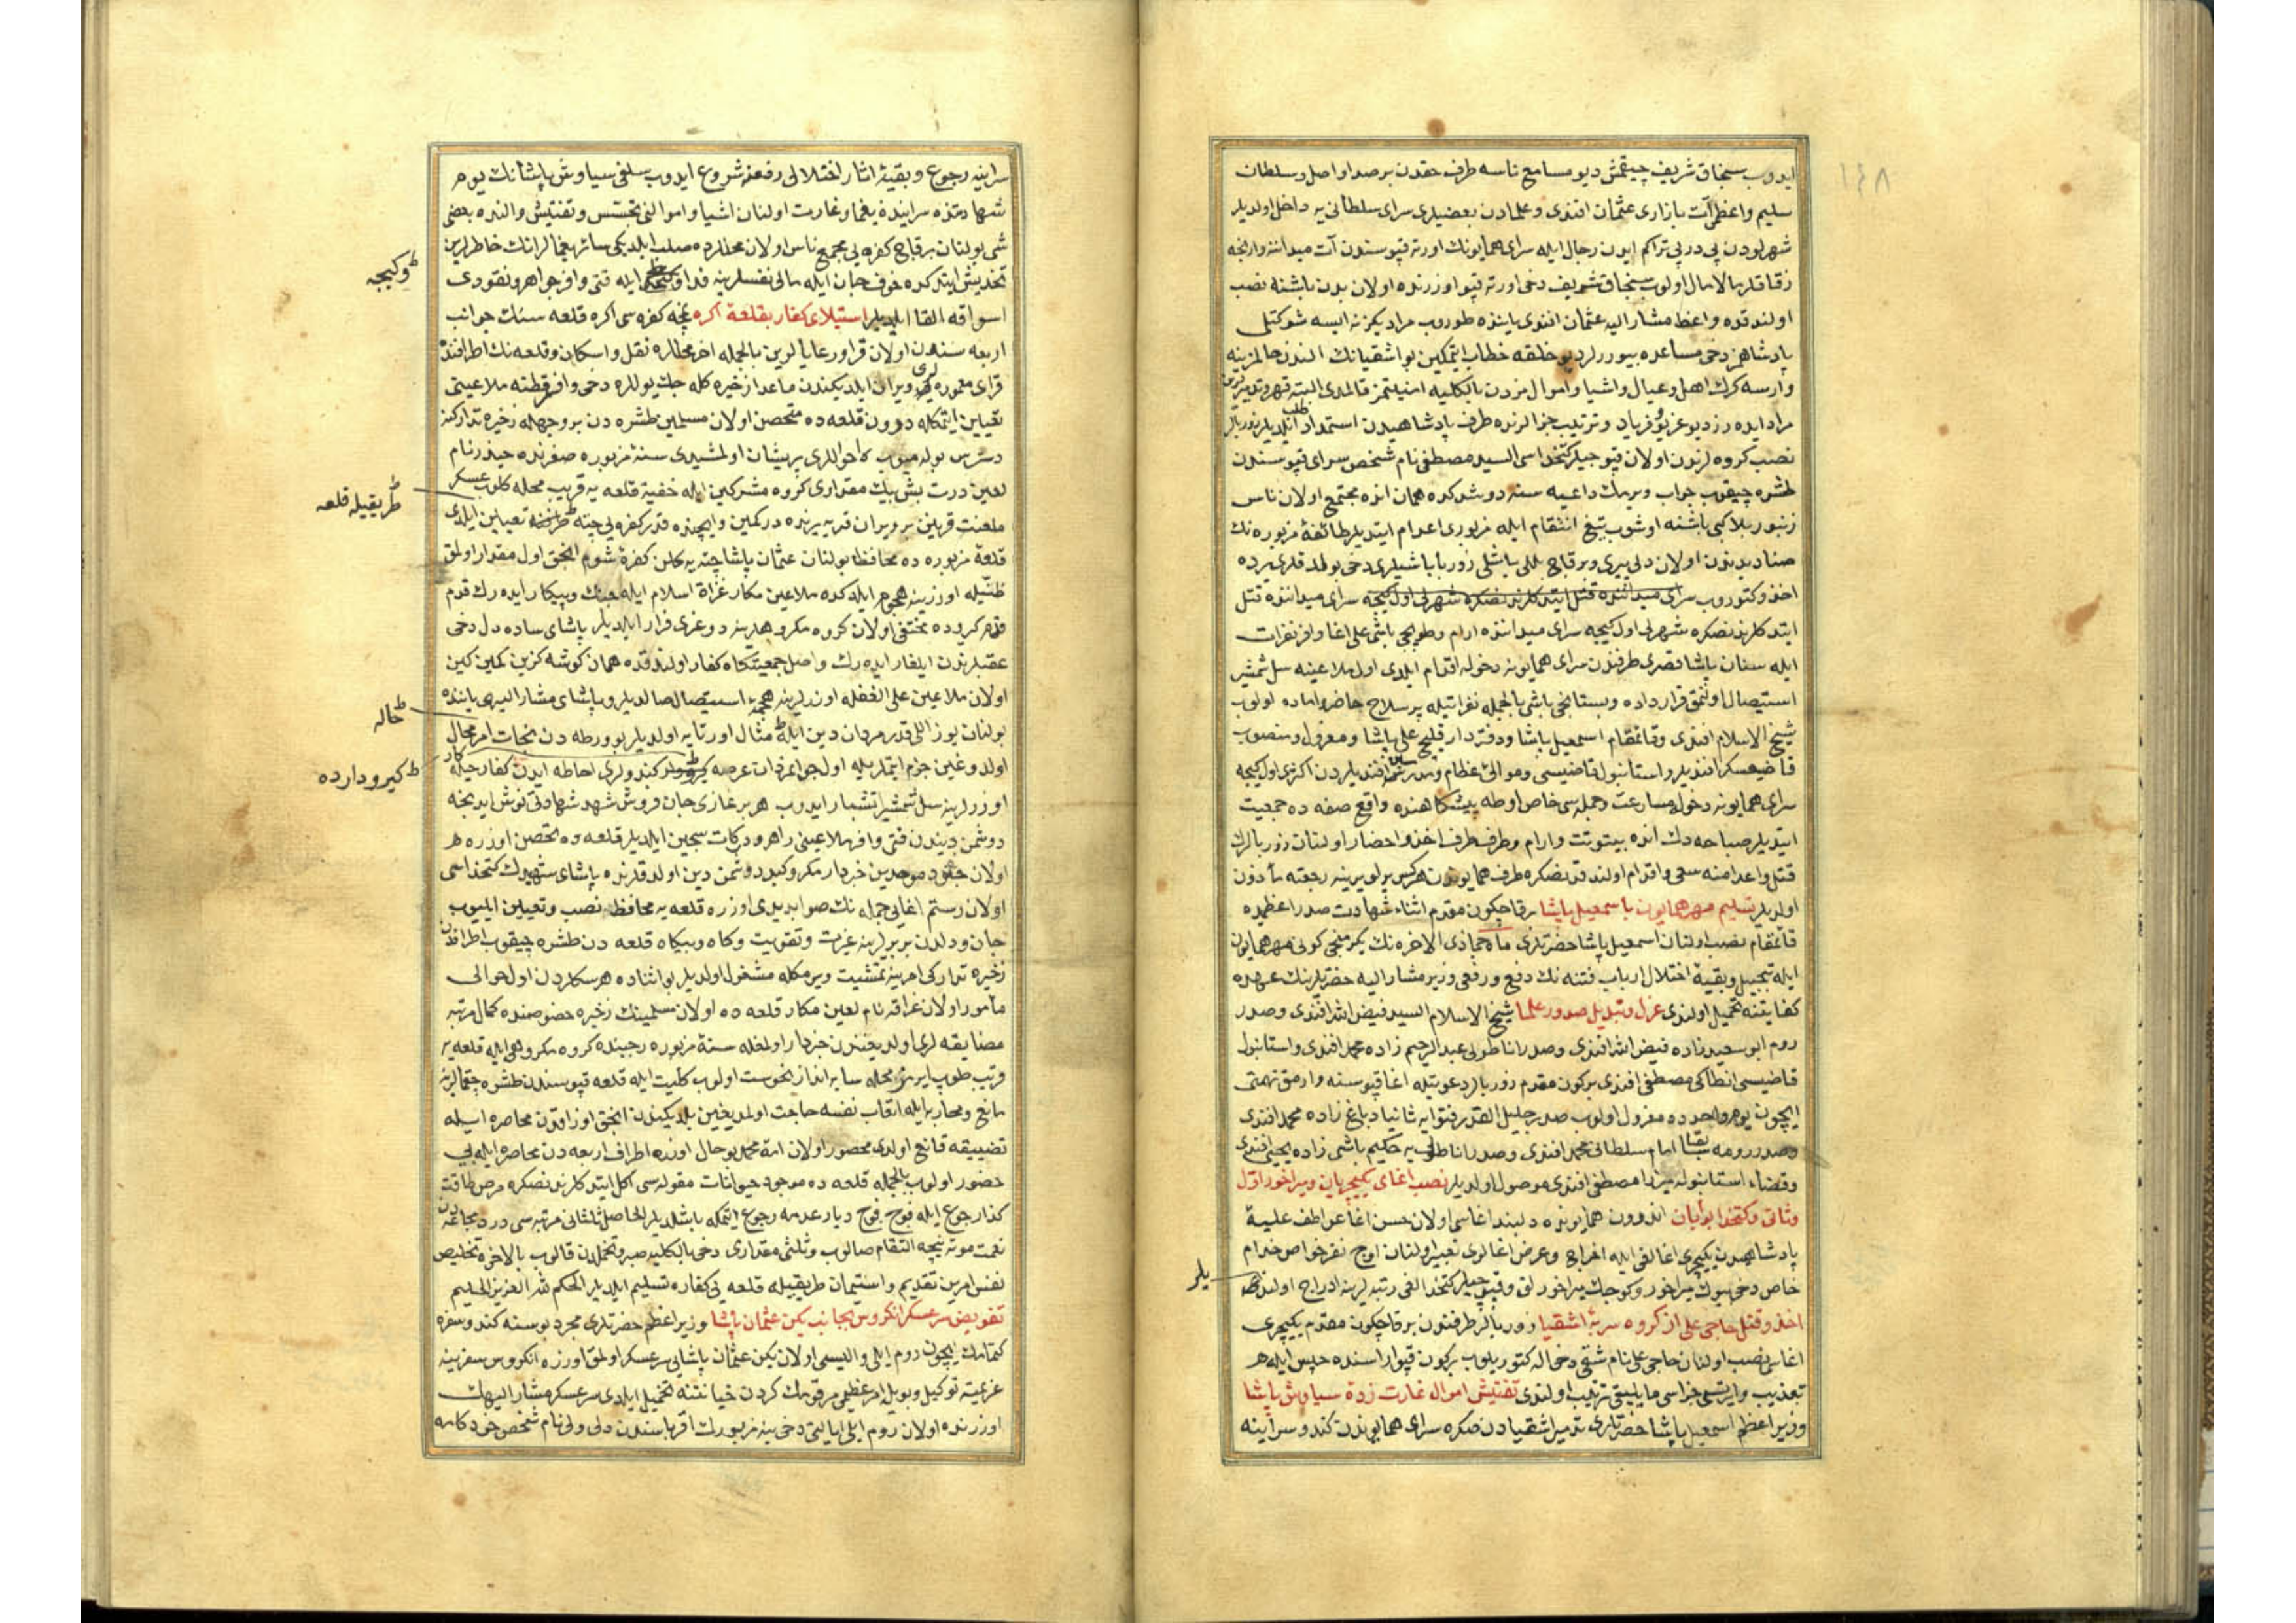 ١٤٨
ايدوب سنجاق شريف چيقمش ديو مسامع ناسه طرف حقدن بر صدا واصل و سلطان
سليم واعظى آت بازارى عثمان افندى و علمادن بعضيلرى سراى سلطانى يه داخل اولديلر
شهرلودن پى در پى تراكم ايدن رجال ايله سراى همايونك اورته قپوسندن آت ميداننه وارنجه
زقاقلر مالامال اولوب سنجاق شريف دخى اورته قپو اوزرنده اولان بدن باشنه نصب
اولندقده واعظ مشار اليه عثمان افندى ياننده طوروب مراديكز نه ايسه شوكتلى
پادشاهمز دخى مساعده بيوررلر ديو خلقه خطاب ايتمكين بو اشقيانك الندن حالمز ينه
وارسه كرك اهل و عيال و اشيا و اموالمزدن بالكليه امنيتمز قالمدى البته قهر و تدميرلرين
مراد ايده رز ديو غريو و فرياد و ترتيب جزالرنده طرف پادشاهيدن استمداد طلب ايلديلر زوربالر
نصب كرده لرندن اولان قپوجيلر كتخداسى السيد مصطفى نام شخص سراى قپوسندن
طشره چيقوب جواب ويرمك داعيه سنه دوشدكده همان انده مجتمع اولان ناس
زنبور بلا كبى باشنه اوشوب تيغ انتقام ايله مزبورى اعدام ايتديلر طائفهٔ مزبوره نك
صناديدندن اولان دلى پيرى و بر قاچ بللى باشلى زوربا باشيلرى دخى بولندقلرى يرده
اخذ و كتوروب سراى ميداننده قتل ايتدكلرندنصكره شهرلى اول كيجه سراى ميداننده قتل
ايتدكلرندنصكره شهرلى اول كيجه سراى ميداننده ارام و طوپجى باشى على اغا وافر نفرات
ايله سنان پاشا قصرى طرفندن سراى همايونه دخوله اقدام ايلدى اول ملاعينه سل شمشير
استيصال اولنمق قرارداده و بستانجى باشى بالجمله نفراتيله پر سلاح حاضر و اماده اولوب
شيخ الاسلام افندى و قائمقام اسمعيل پاشا و دفتردار قليچ على پاشا و معزول و منصوب
قاضيعسكر افنديلر و استانبول قاضيسى و موالئ عظام و مدرسين افنديلردن اكثرى اول كيجه
سراى همايونه دخوله مسارعت و جمله سى خاص اوطه پيشكاهنده واقع صفه ده جمعيت
ايتديلر صباحه دك انده بيتوتت و ارام و طرف طرف اخذ و احضار اولنان زوربالرك
قتل و اعدامنه سعى و اقدام اولندقدنصكره طرف همايوندن هركس يرلو يرينه رجعته مأذون
اولديلر تسليم مهر همايون با اسمعيل پاشا برقاچكون مقدم اثناء شهادت صدر اعظميده
قائمقام نصب اولنان اسمعيل پاشا حضرتلرى ماه جماذى الاخره نك يكرمنجى كونى مهر همايون
ايله تبجيل و بقيهٔ اختلال ارباب فتنه نك دفع و رفعى وزير مشار اليه حضرتلرينك عهده
كفايتنه تحميل اولندى عزل و تبديل صدور علما شيخ الاسلام السيد فيض الله افندى و صدر
روم ابو سعيد زاده فيض الله افندى و صدر اناطولى عبد الرحيم زاده محمد افندى و استانبول
قاضيسى انطاكى مصطفى افندى بركون مقدم زوربالر دعوتيله اغا قپوسنه وارمق تهمتى
ايچون يوم واحدده معزول اولوب صدر جليل القدر فتوايه ثانيا دباغ زاده محمد افندى
و صدر رومه سابقا امام سلطانى محمد افندى و صدر اناطولى يه حكيم باشى زاده يحيى افندى
و قضاء استانبوله ميرزا مصطفى افندى موصول اولديلر نصب اغاى يكيچريان و ميراخور اول
و ثانى و كتخداى بوابان اندرون همايونده دلبند اغاسى اولان حسن اغا عواطف عليهٔ
پادشاهيدن يكيچرى اغالغى ايله اخراج و عرض اغالرى تعبير اولنان اوچ نفر خواص خدام
خاص دخى بيوك ميراخور و كوچك ميراخورلق و قپوجيلر كتخدالغى رتبه لرينه ادراج اولنديلر
يلر
اخذ و قتل حاجى على از كروه سربهٔ اشقيا زوربالر طرفندن برقاچكون مقدم يكيچرى
اغاسى نصب اولنان حاجى على نام شقى دخى اله كتوريلوب بركون قپو اراسنده حبس ايله
تعذيب و ايرتسى جزاسى مايليقى ترتيب اولندى تفتيش اموال غارت زدهٔ سياوش پاشا
وزير اعظم اسمعيل پاشا حضرتلرى تدمير اشقيادن صكره سراى همايوندن كندو سراينه
سراينه رجوع و بقيهٔ اثار اختلالى رفعنه شروع ايدوب سلفى سياوش پاشانك يوم
شهادتنده سراينده يغما و غارت اولنان اشيا و اموالنى تجسس و تفتيش و النده بعضى
شى بولنان برقاچ كفره يى مجمع ناس اولان محللرده صلب ايلديكى سائر يغمالرانك خاطرلرين
تخديش ايتدكده خوف جان ايله مالى نفسلرينه فدا و كيجه ايله قتى وافر جواهر و نقودى
وكيجه
اسواقه القا ايلديلر استيلاى كفار بقلعهٔ اكره نمچه كفره سى اكره قلعه سنك جوانب
اربعه سنده اولان قرا و رعايالرين بالجمله اخر محللره نقل و اسكان و قلعه نك اطرافنده
قراى معموره لرى ويران ايلديكندن ماعدا زخيره كله جك يوللره دخى وافر قطنه ملاعينى
تعيين ايتمكله درون قلعه ده متحصن اولان مسلمين طشره دن بر وجهله زخيره تداركنه
دسترس بوله ميوب احواللرى پريشان اولمشيدى سنهٔ مزبوره صفرنده حيدر نام
لعين درت بش بيك مقدارى كروه مشركين ايله خفيةً قلعه يه قريب محله كلوب عسكر
طريقيله قلعه
ملعنت قرينن بر ويران قريه يرنده در كمين و ايچنده قدر كفره يى چته تعيين ايلدى
قلعهٔ مزبوره ده محافظ بولنان عثمان پاشا چته يه كلن كفرهٔ شوم انجق اول مقدار اولمق
ظنيله اوزرينه هجوم ايلدكده ملاعين مكار غزاة اسلام ايله جنك و پيكار ايده رك قدم
قدم كيروده مختفى اولان كروه مكروهلرينه دوغرى فرار ايلديلر پاشاى ساده دل دخى
عقبلرندن ايلغار ايده رك واصل جمعيتكاه كفار اولندقده همان كوشه كزين كمين كين
اولان ملاعين على الغفله اوزرلرينه هجمهٔ استيصال صالديلر و پاشاى مشار اليهى ياننده
بولنان يوز اللى قدر مردان دين ايله مثال اورتايه اولديلر بو ورطه دن نجات امر محال
هاله
اولدوغين جزم ايتملريله اول جوانمردان عرصه كندولرى احاطه ايدن كفار حيله كار
كيرودارده
اوزرلرينه سل شمشير اتشبار ايدوب هر بر غازى جان فروش شهد شهادتى نوش ايدنجه
دوشمن ديندن قتى وافر ملاعينى راهرو دركات سجين ايلديلر قلعه ده تحصن اوزره
اولان جنود موحدين خبردار مكر و كيد دوشمن دين اولدقلرنده پاشاى شهيدك كتخداسى
اولان رستم اغايى جمله نك صوابديدى اوزره قلعه يه محافظ نصب و تعيين ايليوب
جان و دلدن بربرلرينه غيرت و تقويت و كاه و بيكاه قلعه دن طشره چيقوب اطرافدن
زخيره تداركى امرينه تمشيت ويرمكله مشغول اولديلر بو اثناده هرسكلردن اول حوالى
مأمور اولان غرافه نام لعين مكار قلعه ده اولان مسلمينك زخيره خصوصنده كمال مرتبه
مضايقه لرى اولديغندن خبردار اولمغله سنهٔ مزبوره رجبنده كروه مكروهى ايله قلعه يه
قريب طوپ ايرمز محله سايه انداز نحوست اولوب كليت ايله قلعه قپوسندن طشره چقمالرينه
مانع و محاربه ايله اتعاب نفسه حاجت اولمديغين بلديكندن انجق اوزاقدن محاصره ايله
تضييقه قانع اولدى محصور اولان امة محمد بو حال اوزره اطراف اربعه دن محاصره ايله بى
حضور اولوب بالجمله قلعه ده موجود حيوانات مقوله سى اكل ايتدكلرندنصكره مرض طاقت
كذار جوع ايله فوج فوج ديار عدمه رجوع ايتمكه باشلديلر الحاصل ثلثانى مرتبه سى درد مجاعتدن
نعمت موته نيچه التقام صالوب و ثلثى مقدارى دخى بالكليه صبر و تحملدن قالوب بالاخره تخليص
نفس امرين تقديم و استيمان طريقيله قلعه يى كفاره تسليم ايلديلر الحكم لله العزيز الحليم
تفويض سر عسكر انكروس بجانب يكن عثمان پاشا وزير اعظم حضرتلرى مجرد بوسنه كندو سفره
كتمامك ايچون روم ايلى واليسى اولان يكن عثمان پاشايى سر عسكر اولمق اوزره انكروس سفرينه
عزيمته توكيل و بويله امر عظيمى مرقومك كردن خيانتنه تحميل ايلدى سر عسكر مشار اليهك
اوزرنده اولان روم ايلى ايالتى دخى ينه مزبورك اقرباسندن دلى ولى نام شخص خودكامه